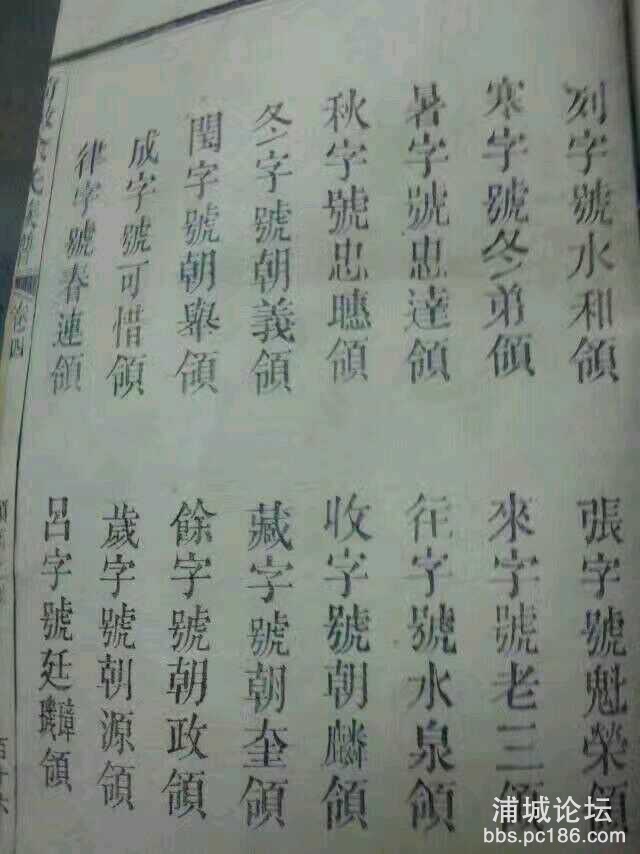 列字號水和領
張字號魁榮領
寒字號冬弟領
來字號老三領
暑字號忠達領
往字號水泉領
秋字號忠聰領
收字號朝麟領
冬字號朝義領
藏字號朝奎領
閏字號朝舉領
餘字號朝政領
成字號可惜領
歲字號朝源領
律字號春連領
呂字號廷璋璣領
氏族譜
卷四
浦城论坛
bbs.pc186.com